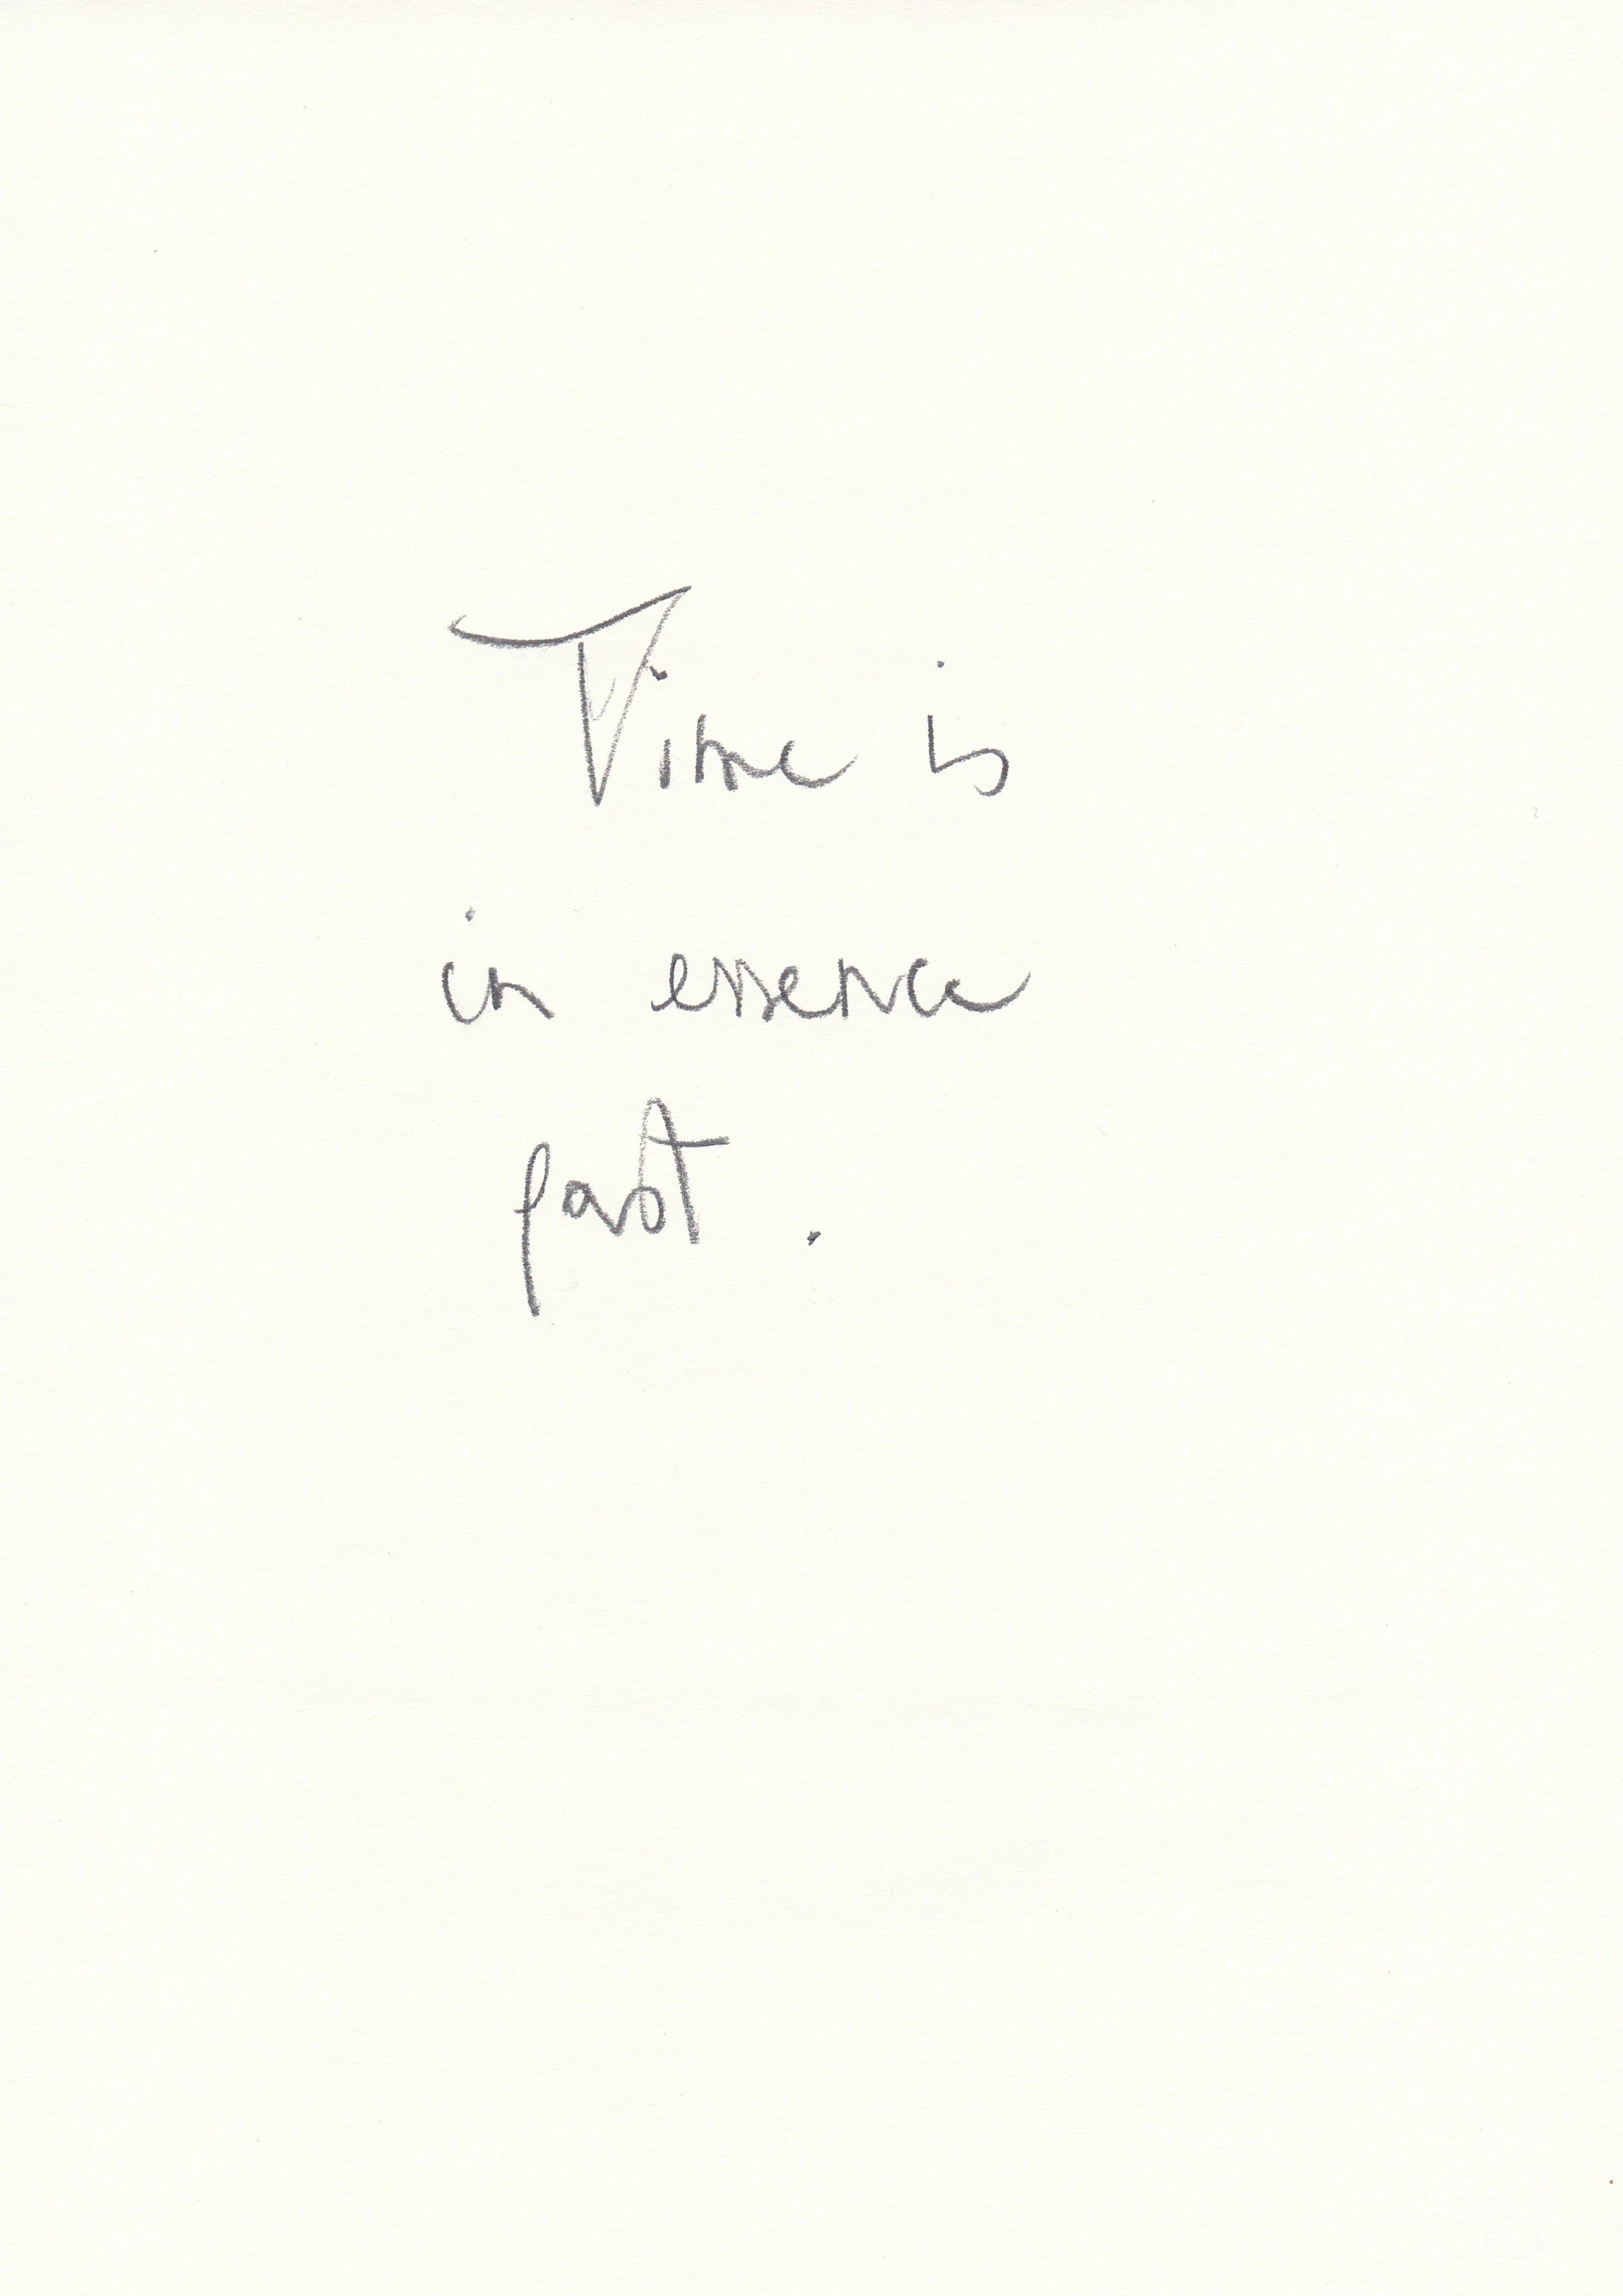 Time is
in essence
past.